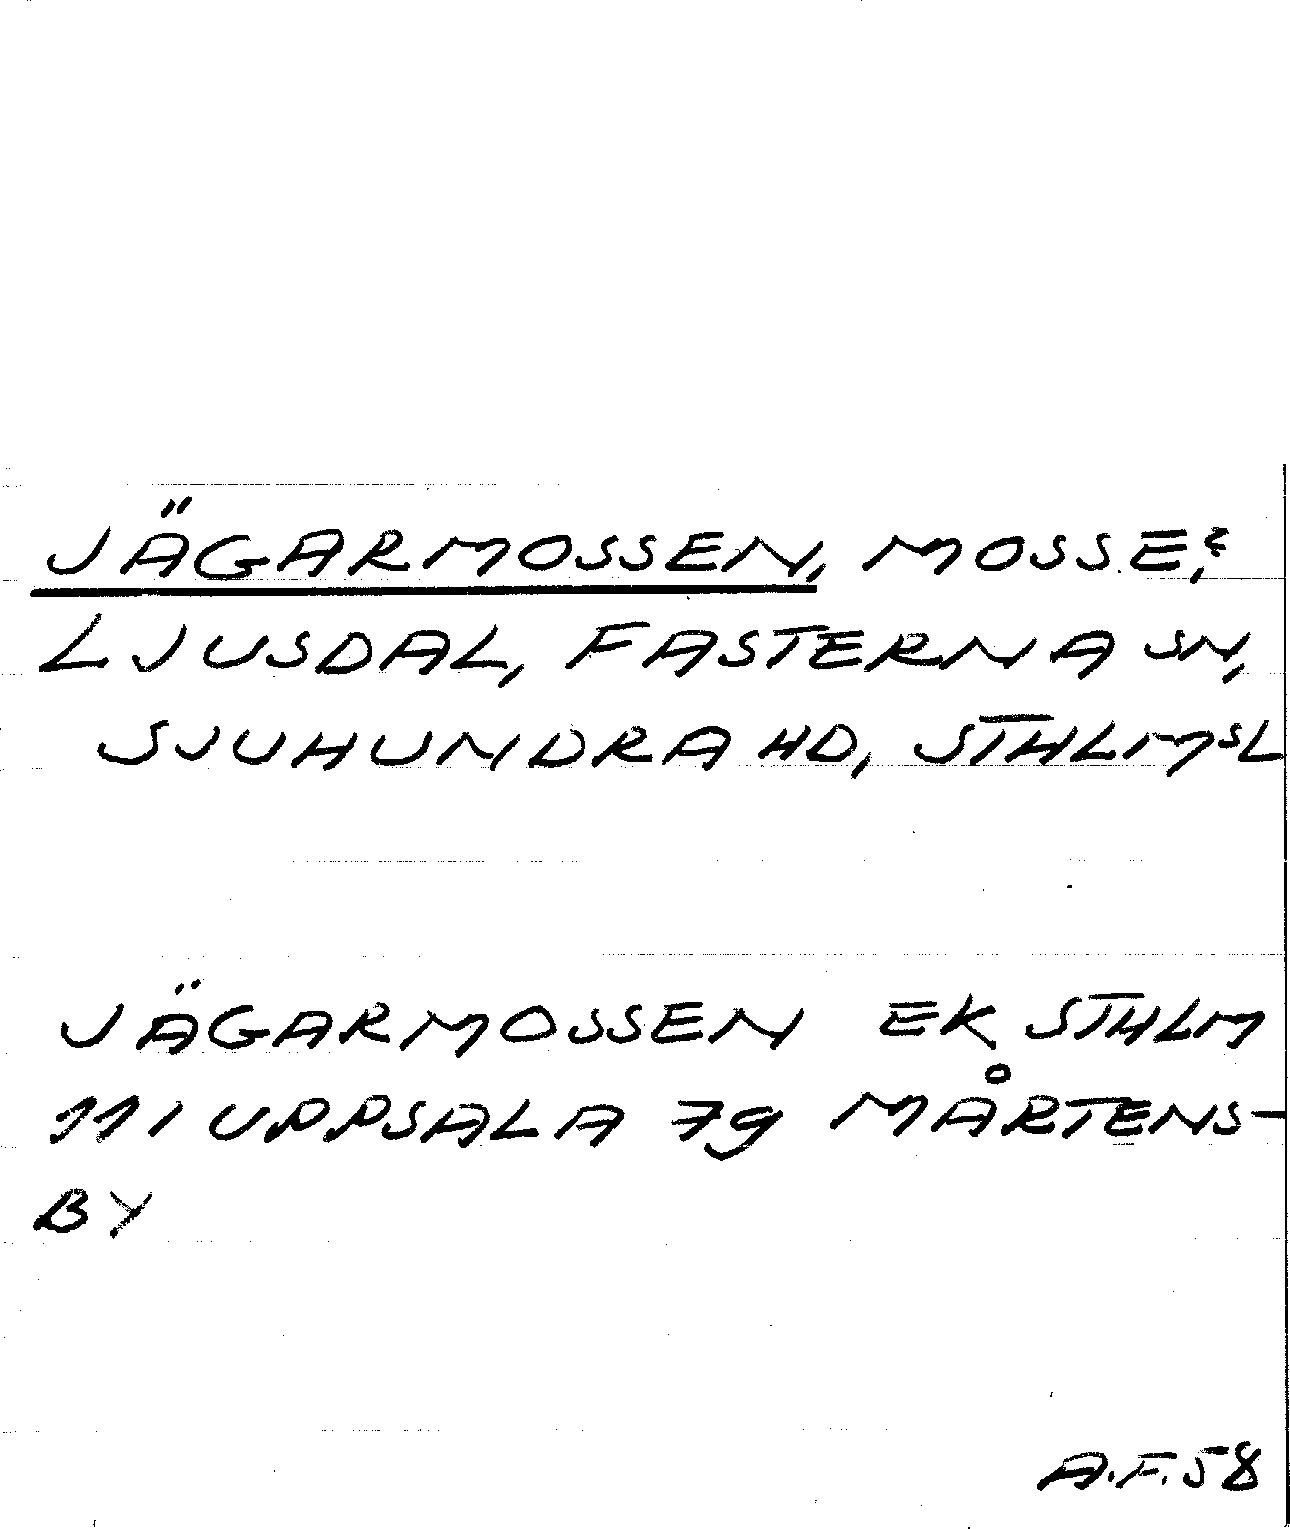 JÄGARMOSSEN, MOSSE;
LJUSDAL, FASTERNA SN,
SJUHUNDRA HD, STHLMSL
JÄGARMOSSEN EK STHLM
111 UPPSALA 79 MÅRTENS-
BY
A.F.58